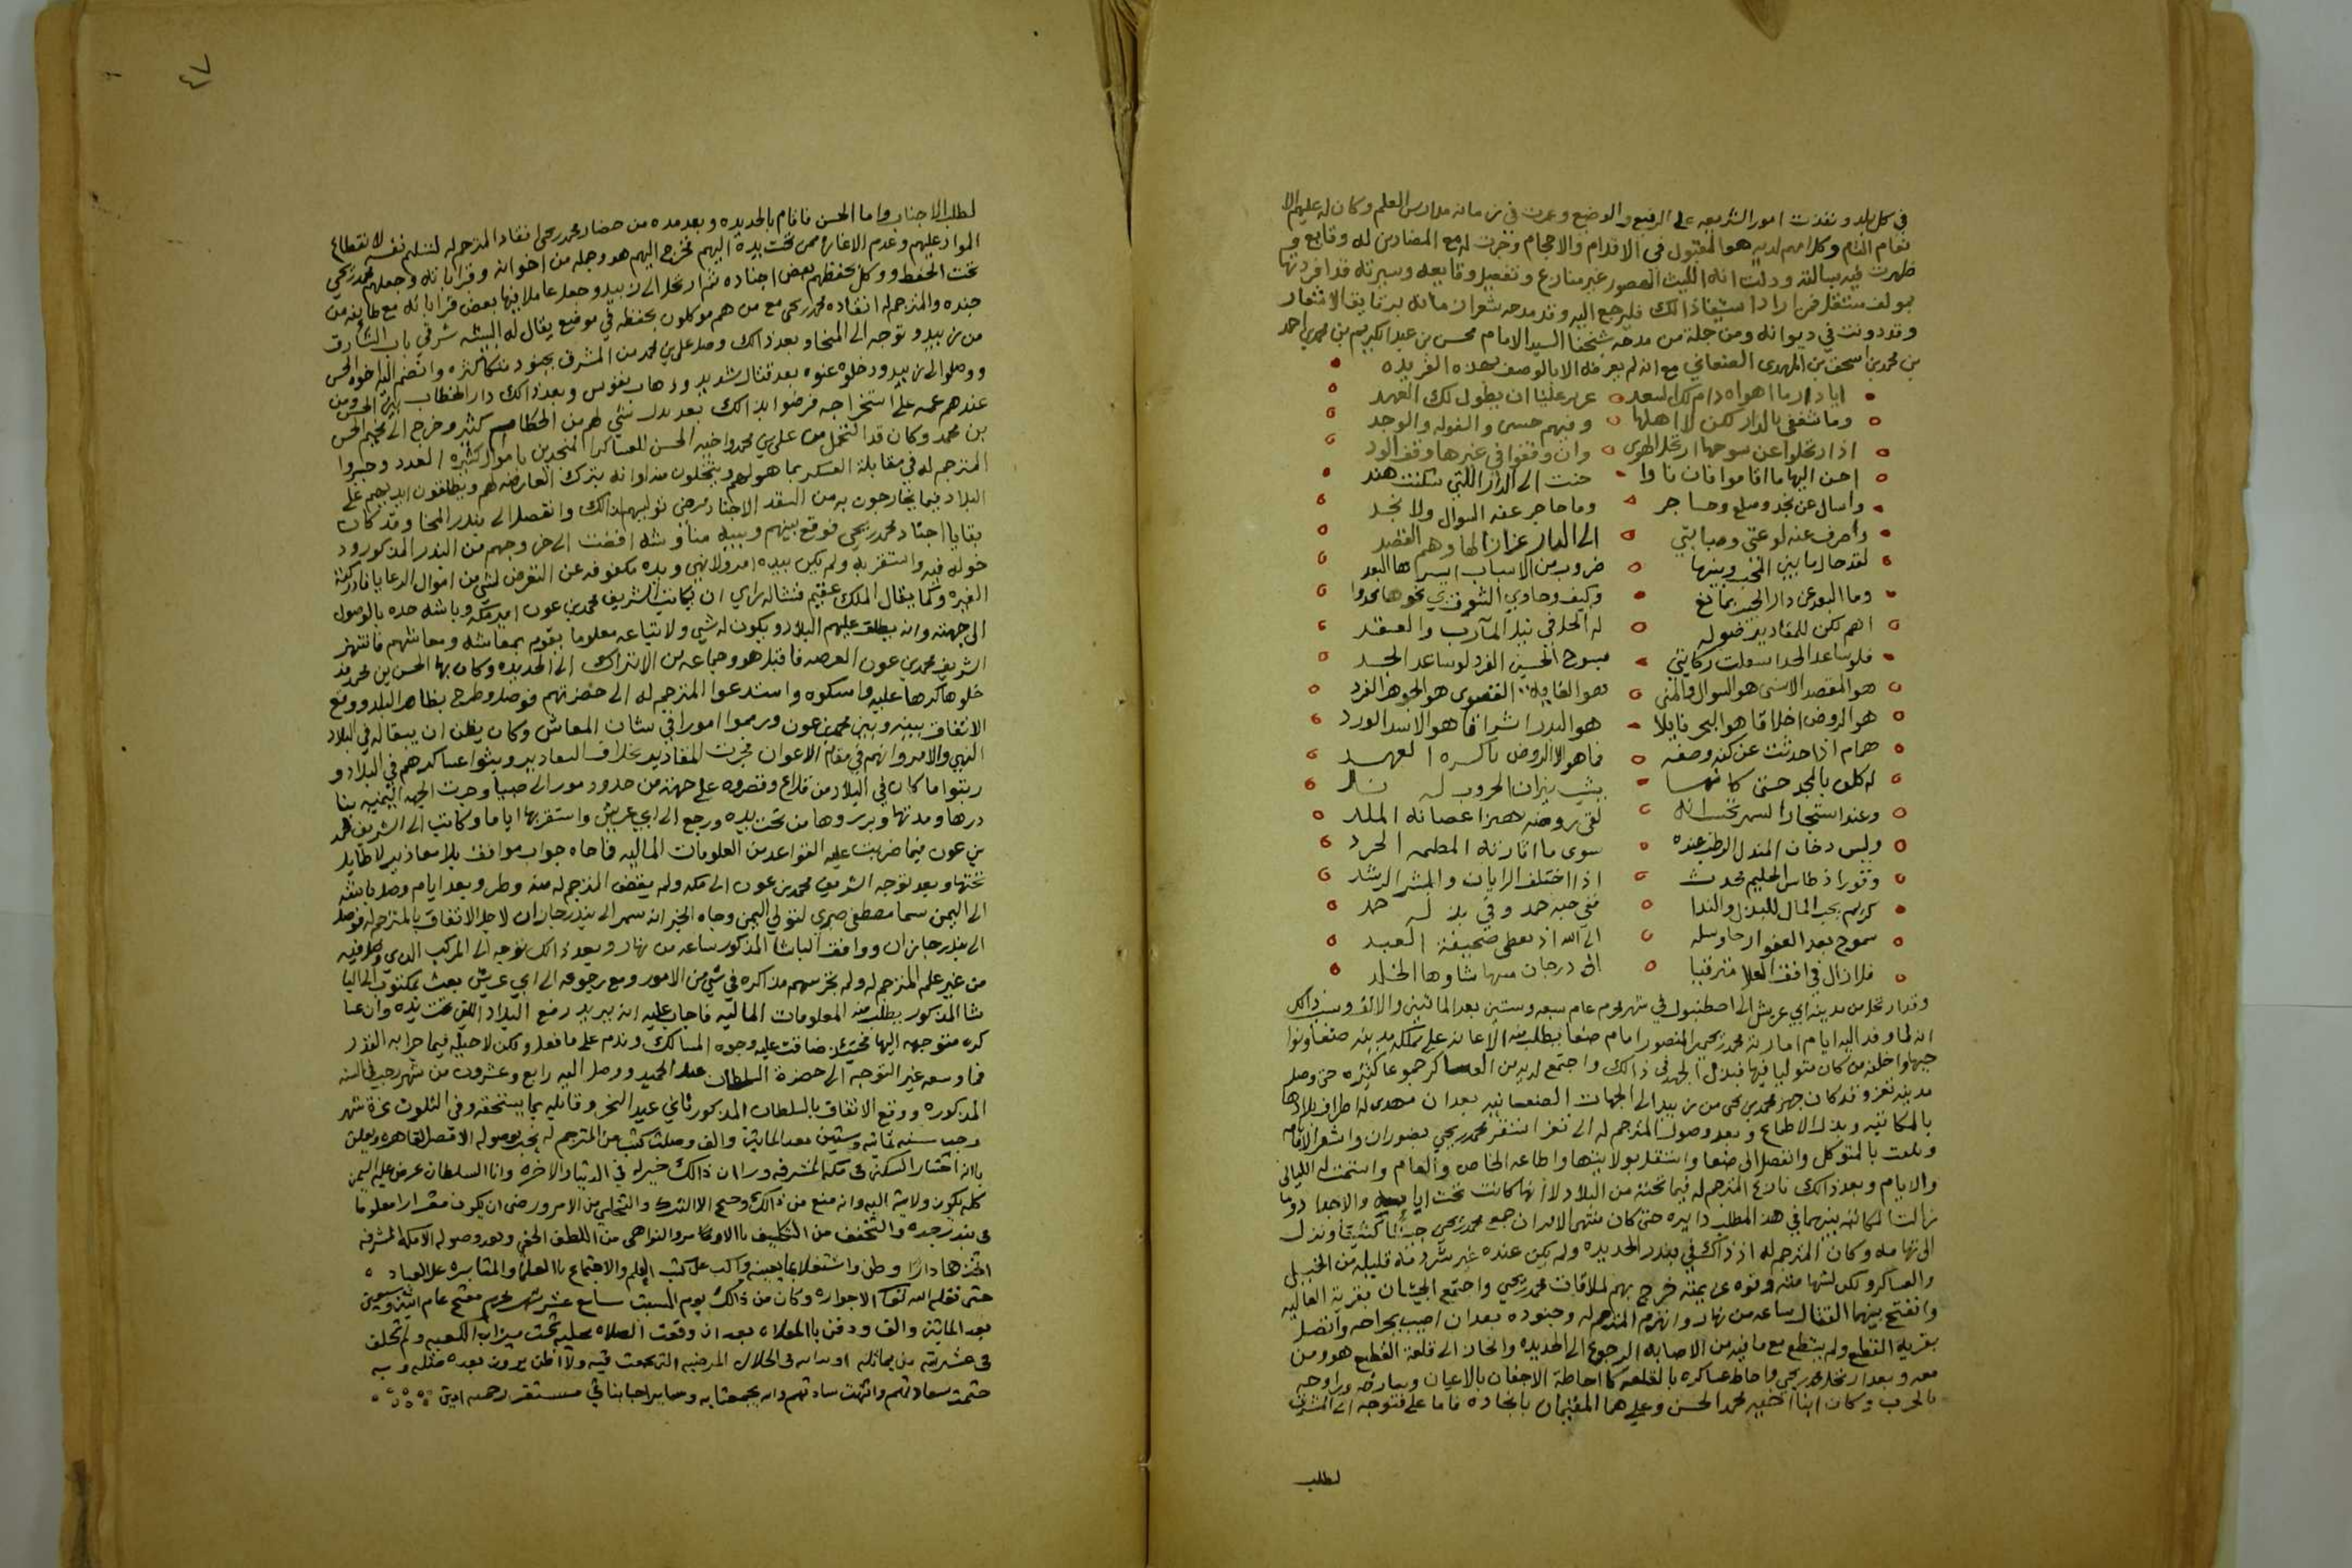 في كل بلد ونفذت امور الشريعه على الرفيع والوضيع وعمرت في زمانه مدارس العلم وكان له عليهم الا
نعام التام وكلامهم لديه هو المقبول في الاقدام والاحجام وجرت له مع المضادين له وقايع و
ظهرت فيه بسالته ودلت انه الليث الهصور غير منازع وتفصيل وقايعه وسيرته قد افردتها
بمولف مستقل فمن اراد استيفا ذالك فليرجع اليه وقد مدحه شعرا زمانه برقايق الاشعار
وقد دونت في ديوانه ومن جملة من مدحه شيخنا السيد الامام محسن بن عبد الكريم بن محمد بن احمد
بن محمد بن اسحق بن المهدى الصنعاني مع انه لم يعرفه الا بالوصف بهذه الفريده
ايا دار ما اهواه دام لك السعد عزيز علينا ان يطول لك العهد
وما شغفي بالدار لكن لاهلها وفيهم حسى والتوله والوجد
اذا ارتحلوا عن سوحها ارتحل الهوى وان وقفوا في غيرها وقف الود
احن اليها ما اقاموا فان ناوا حننت الى الدار اللتي سكنت هند
واسال عن نجد وسلع وحاجر وما حاجر عنه السوال ولا نجد
وأصرف عنه لوعتي وصبابتي الى الدار عزا زالها وهم القصد
لقد حال ما بين المحب وبينها ضروب من الاسباب ايسرها البعد
وما البعد عن دار الحبيب بمانع وكيف وحادي الشوق بي نحوها يحدوا
اهم لكن للمقادير صوله له الحل في نيل المآرب والعقد
فلو ساعد الجد استقلت ركايبي بسوح الحسين الفرد لو ساعد الجد
هو المقصد الاسنى هو السول والمنى هو الغايه القصوى هو الجوهر الفرد
هو الروض اخلاقا هو البحر نايلا هو البدر اشراقا هو الاسد الورد
همام اذا حدثت عن كنه وصفه فما هو الا الروض باكره العهد
له كلف بالمجد حتى كانها
وعند استجار السمر تحسب انه لقى روضه
وليس دخان المندل الرطب عنده سوى ما اثارته المطهمه الجرد
وقور اذ طاش الحليم محدث اذا اختلف الرايات والمبشر الرشد
كريم يحب المال للبذل والندا ففي حبه حمد وفي بذله حمد
سموح يعد العفو الى الله اذ يعطى صحيفته العبد
فلا زال في افق العلا مترقيا الى درجات منتهاها الخلد
وقد ارتحل من مدينة ابي عريش الى اصطنبول في شهر محرم عام سبعه وستين بعد الماتين والالف وسبب ذالك
انه لما وفد اليه ايام امارته محمد بن يحيى المنصور امام صنعا يطلب منه الاعانه على تملكه مدينه صنعا ونوا
حيها واخلفه من كان متوليا فيها فبذل الجهد في ذالك واجتمع لديه من العساكر جموعا كثيره حتى وصل
مدينه تعز وقد كان جهز محمد بن يحيى من زبيد الى الجهات الصنعانيه بعد ان مهدى له اطراف بلادها
بالمكاتبه وبذل الاطماع وبعد وصول المترجم له الى تعز استقر محمد بن يحيى بضوران واشعر الاقامه
وتلقب بالمتوكل وانفصل الى صنعا واستقل بولايتها واطاعه الخاص والعام واستتمت له الليالي
والايام وبعد ذالك نازع المترجم له فيما تحته من البلاد لانها كانت تحت ايا والاجداد وما
زالت المكاتبه بينهما في هذا المطلب دايره حتى كان منتهى الامر ان جمع محمد بن يحيى جيشا كثيفا ونزل
الى تهامه وكان المترجم له اذ ذاك في بندر الحديده ولم يكن عنده غير شرذمة قليله من الخيل
والعساكر ولكن لشهامته وقوه عزيمته خرج بهم لملاقات محمد بن يحيى واجتمع الجيشان بقرية
وانفتح بينهما القتال ساعه من نهار وانهزم المترجم له وجنوده بعد ان اصيب بجراحه وانفصل
بقريه القطيع ولم يستطع مع ما فيه من الاصابه الرجوع الى الحديده وانحاز الى قلعة القطيع هو ومن
معه وبعد ارتحل محمد بن يحيى واحاط عساكره بالقلعه كما احاطة الاجفان بالاعيان ويعارضه ويراوحه
بالحرب وكان ابنا اخيه محمد الحسن وعلي هما المقيمان بانجاده فاما علي فتوجه الى المشرق
لطلب
٤٧
لطلب الاجناد واما الحسن فاقام بالحديده وبعد مده من حصار محمد بن يحيى انقاد المترجم له لتسليم نفسه لانقطاع
المواد عليهم وعدم الاغاثه ممن تحت يده اليهم فخرج اليهم هو وجملة من اخوانه وقراباته وجعلهم محمد بن يحيى
تحت الحفظ ووكل بحفظهم بعض اجناده ثم ارتحل الى زبيد وجعل عاملا فيها بعض قراباته مع طايفه من
جنده والمترجم له انقاده محمد بن يحيى مع من هم موكلون بحفظه في موضع يقال له البشه شرقي باب الشارق
من زبيد وتوجه الى المخا وبعد ذالك وصل علي بن محمد من المشرق بجنود متكاثره وانضم اليه اخوه الحسن
ووصلوا الى زبيد ودخلوه عنوه بعد قتال شديد وذهاب نفوس وبعد ذالك دار الخطاب بين الحسن ومن
عندهم عمه على استخراجه فرضوا بذالك بعد بذل شي لهم من الحطام كثير وخرج الى مخيم الحسن
بن محمد وكان قد التحمل من علي بن محمد واخيه الحسن للعساكر المنجدين باموال كثيره العدد وجبروا
المترجم له في مقابلة العسكر بما هو لهم ويتخلون منه او انه يترك المعارضه لهم ويطلقون ايديهم على
البلاد فيما يخارجون به من النقد الاجناد فرضى توليهم لذالك وانفصل الى بندر المخا وقد كان
بقايا اجناد محمد بن يحيى فوقع بينهم وبينه مناوشه افضت الى خروجهم من البندر المذكور ود
خوله فيه واستقر به ولم يكن بيده امر ولا نهي ويده مكفوفه عن التعرض لشي من اموال الرعايا فادركته
الغيره وكما يقال الملك عقيم فنشاله راي ان يكاتب الشريف محمد بن عون امير مكه وباشه جده بالوصول
الى جهته وانه يطلق عليهم البلاد ويكون له شي ولاتباعه معلوما يقوم بمعاشه ومعاشهم فانتهز
الشريف محمد بن عون الفرصه فاقبل هو وجماعه من الاتراك الى الحديده وكان بها الحسن بن محمد فد
خلوها كرها عليه وامسكوه واستدعوا المترجم له الى حضرتهم فوصل وطرح بظاهر البلد ووقع
الاتفاق بينه وبين محمد بن عون ورسموا امورا في شان المعاش وكان يظن ان يبقا له في البلاد
النهي والامر وانهم في مقام الاعوان فجرت المقادير بخلاف التقادير وبثوا عساكرهم في البلاد و
رتبوا ما كان في البلاد من قلاع وقصروه على جهته من حدود مور الى صبيا وجرت الجهه اليمنيه بنا
درها ومدنها وبرروها من تحت يده ورجع الى ابي عريش واستقر بها اياما وكاتب الى الشريف محمد
بن عون فيما ضربت عليه القواعد من المعلومات الماليه فاجاه جواب موافق بلا معاذير لا طايل
تحتها وبعد توجه الشريف محمد بن عون الى مكه ولم يقض المترجم له منه وطر وبعد ايام وصل باشه
الى اليمن سما مصطفى صبري لتولي اليمن وجاه الخبر انه سمر الى بندر جازان لاجل الاتفاق بالمترجم له فوصل
الى بندر جازان ووافق الباشا المذكور ساعه من نهار وبعد ذالك توجه الى المركب الذي وصل فيه
من غير علم المترجم له ولم يجر بينهم مذاكره في شي من الامور ومع رجوعه الى ابي عريش بعث بمكتوب الى البا
شا المذكور يطلب منه المعلومات الماليه فاجاب عليه انه يريد رفع البلاد اللتي تحت يده وان عسا
كره متوجهه اليها فحينئذ ضاقت عليه وجوه المسالك وندم على ما فعل ولكن لا حيله فيما جرا به القدر
فما وسعه غير التوجه الى حضرة السلطان عبد الحميد ووصل اليه رابع وعشرون من شهر رجب في السنه
المذكوره ووقع الاتفاق بالسلطان المذكور ثاني عيد النحر وقابله بما يستحقه وفي الثلوث غرة شهر
رجب سنه ثمانيه وستين بعد الماتين والف وصلت كتب من المترجم له يخبر بوصوله الاقصى القاهره ويعلن
بانه اختار السكنى في مكه المشرفه وراى ان ذالك خير له في الدنيا والاخره وانا السلطان عرض عليه اليمن
كله يكون ولايته اليه وانه منع من ذالك وجنح الا الترك والتخلي من الامر ورضى ان يكون مقررا معلوما
في بندر جده والتخفف من التكليف بالاوامر والنواهى من اللطف الخفي وبعد وصوله الا مكه المشرفه
اتخذها دارا وطن واشتغل بما يعنيه واكب على كتب العلم والاجتماع بالعلما والمثابره على العباده
حتى نقله الله لنعم الاجواره وكان من ذالك يوم السبت سابع عشر شهر محرم مفتتح عام اثنين وسبعين
بعد الماتين والف ودفن بالمعلاه بعد ان وقعت الصلاه عليه تحت ميزاب الكعبه ولم تخلف
في عشيرته من يماثله او يدانيه في الخلال المرضيه التي جمعت فيه ولا اظن يرون بعده مثله وبه
ختمت سعادتهم وانتهت سيادتهم والله يجمعنا به وساير احبابنا في مستقر رحمه امين